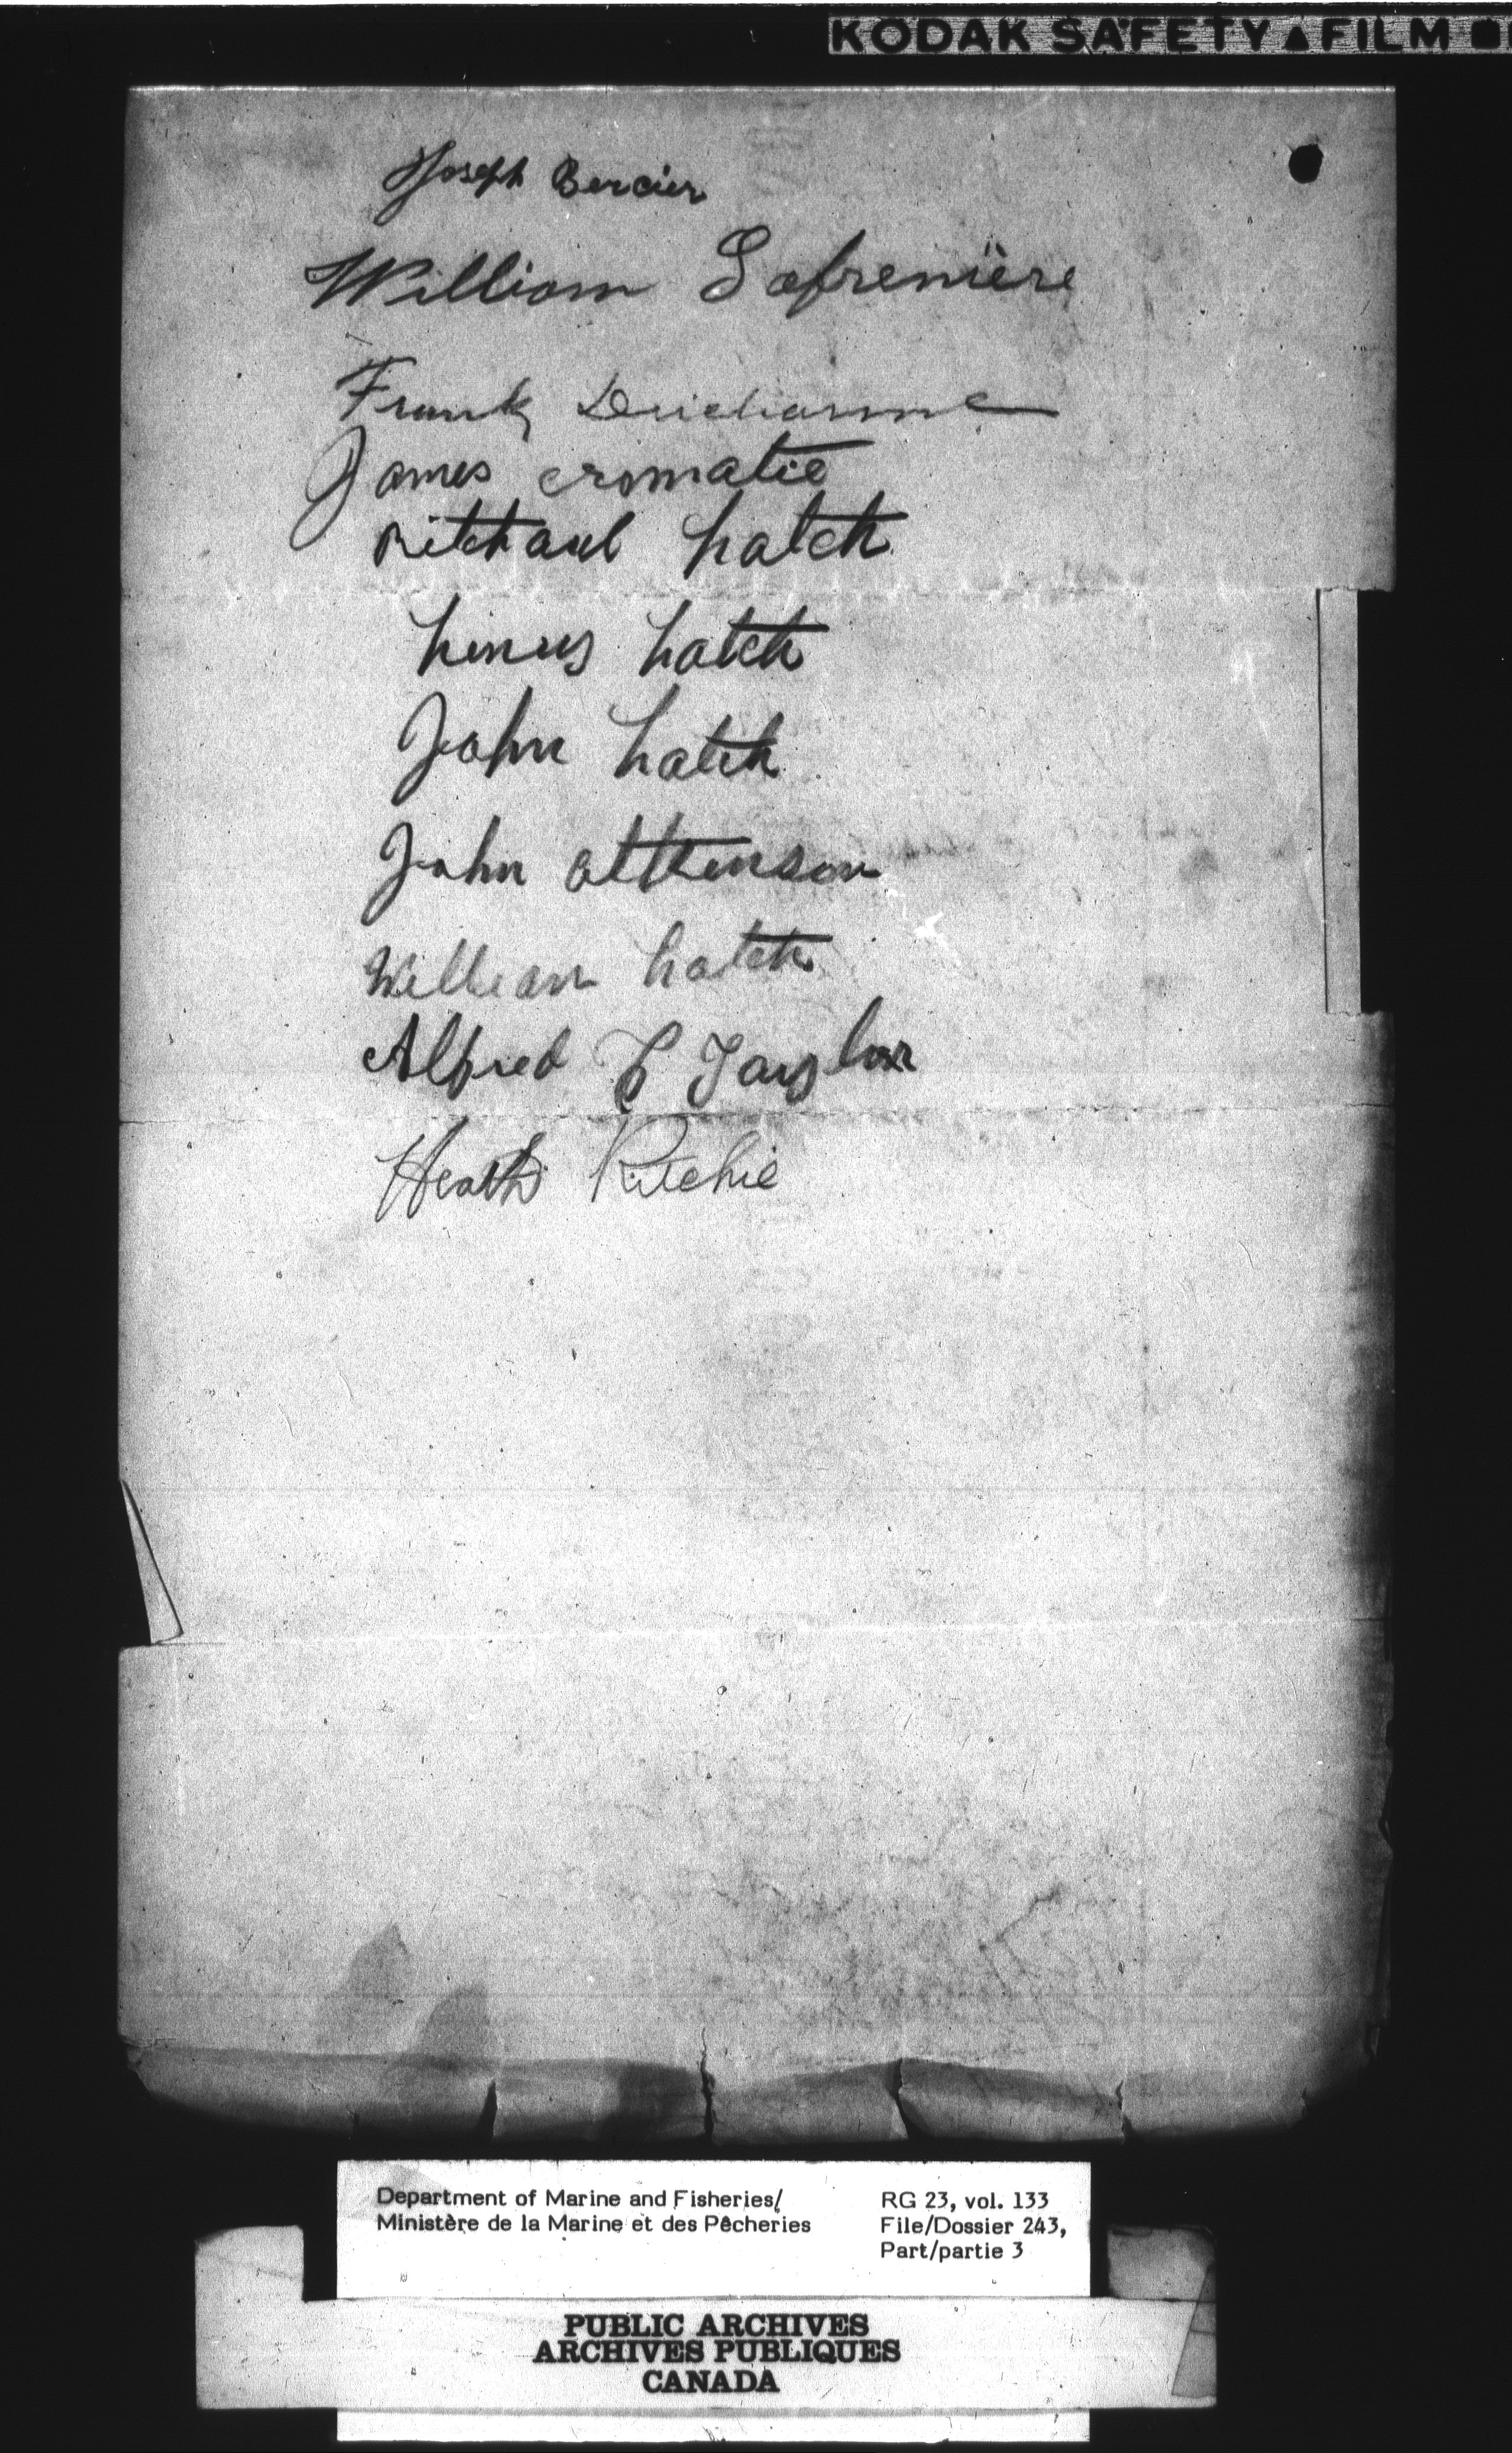 KODAK SAFETY FILM
Joseph Bercier
William Lafrenière
Frank Ducharme
James cromatie
hatch
hatch
John hatch
John attkinson
William hatch
Alfred Taylor
Heath Ritchie
Department of Marine and Fisheries/
Ministère de la Marine et des Pêcheries
RG 23, vol. 133
File/Dossier 243,
Part/partie 3
PUBLIC ARCHIVES
ARCHIVES PUBLIQUES
CANADA